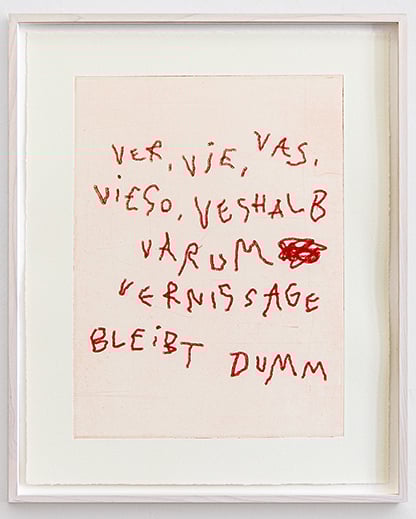 VER, ViE, VAS,
ViESO, VESHALB
VARUM
VERNISSAGE
BLEiBT DUMM